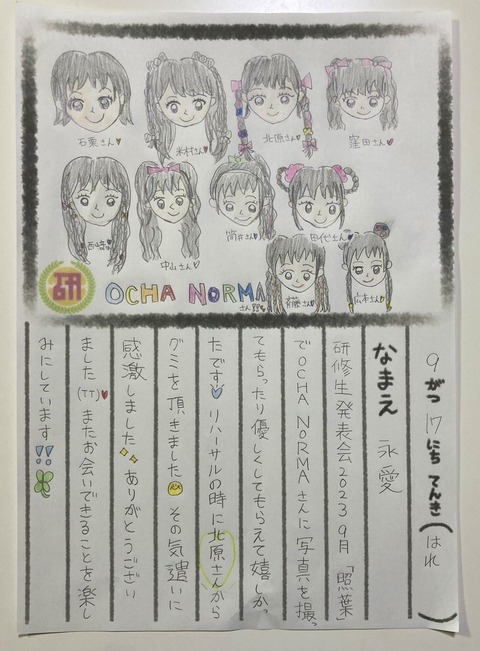 石栗さん
米村さん
北原さん
窪田さん
西﨑さん
中山さん
筒井さん
田代さん
斉藤さん
広本さん
研
OCHA NORMA
さん
9がつ17にち てんき(はれ)
なまえ 永愛
研修生発表会2023 9月 「照葉」
でOCHA NORMAさんに写真を撮っ
てもらったり優しくしてもらえて嬉しかっ
たです♡ リハーサルの時に北原さんから
グミを頂きました その気遣いに
感激しました ありがとうござい
ました(TT)♥ またお会いできることを楽し
みにしています!!